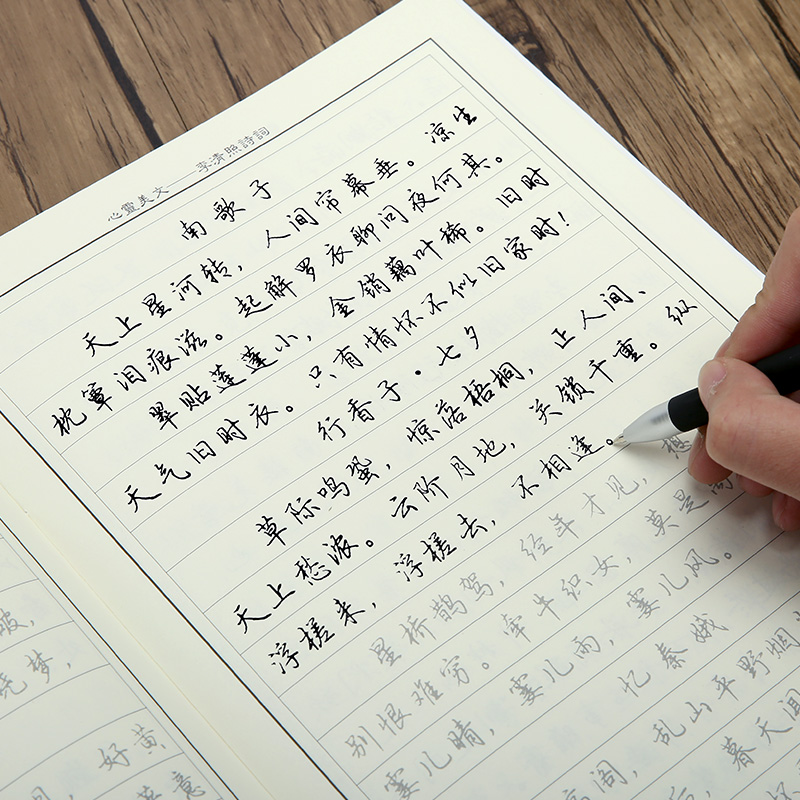 心靈美文——李清照詩詞
南歌子
天上星河转，人间帘幕垂。凉生
枕簟泪痕滋。起解罗衣聊问夜何其。
翠贴莲蓬小，金销藕叶稀。旧时
天气旧时衣。只有情怀不似旧家时！
行香子·七夕
草际鸣蛩，惊落梧桐，正人间、
天上愁浓。云阶月地，关锁千重。纵
浮槎来，浮槎去，不相逢。
星桥鹊驾，经年才见，想
别恨难穷。牵牛织女，莫是离
霎儿晴，霎儿雨，霎儿风。
忆秦娥
高阁，乱山平野烟
暮天闻
梦，
好黄
意